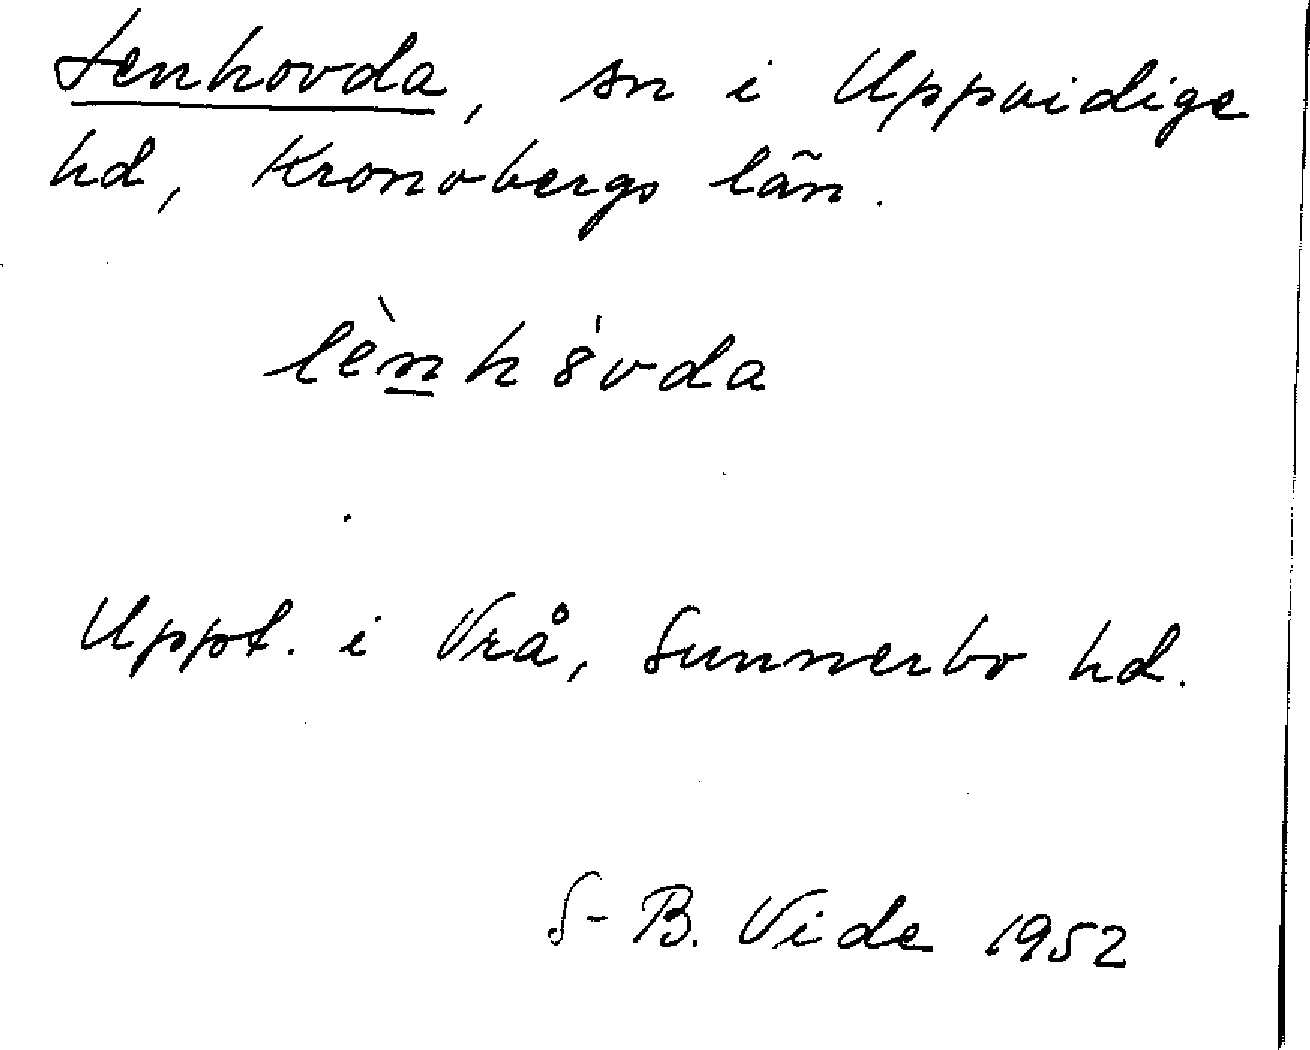 Lenhovda, sn i Uppvidinge
hd, Kronobergs län.
lènh8́vda
Uppt. i Vrå, Sunnerbo hd.
S-B. Vide 1952